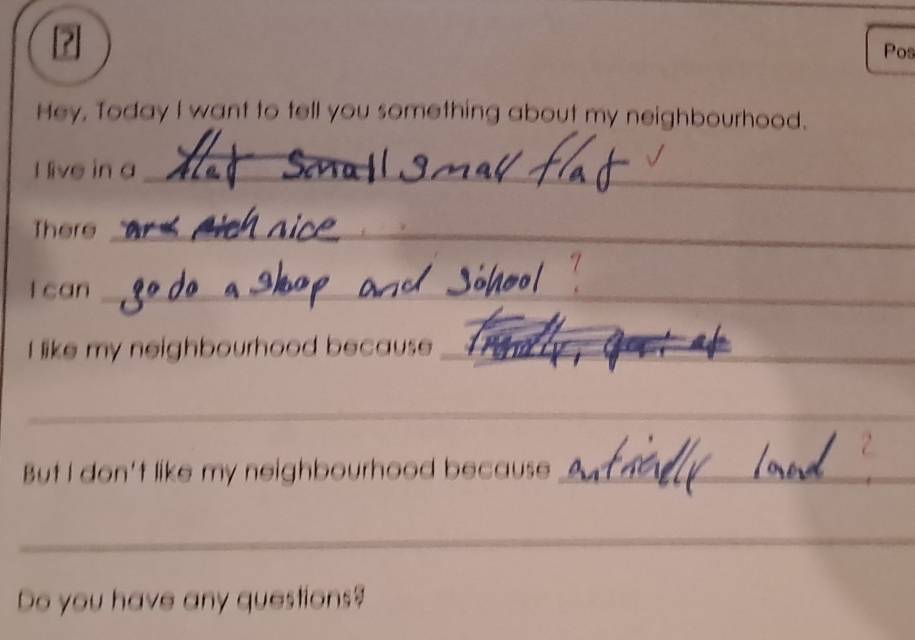 ?
Pos
Hey, Today I want to tell you something about my neighbourhood.
I live in a flat small small flat ✓
There are rich nice
I can go do a shop and school ?
I like my neighbourhood because friendly,
But I don't like my neighbourhood because unfriendly loud ?
Do you have any questions?